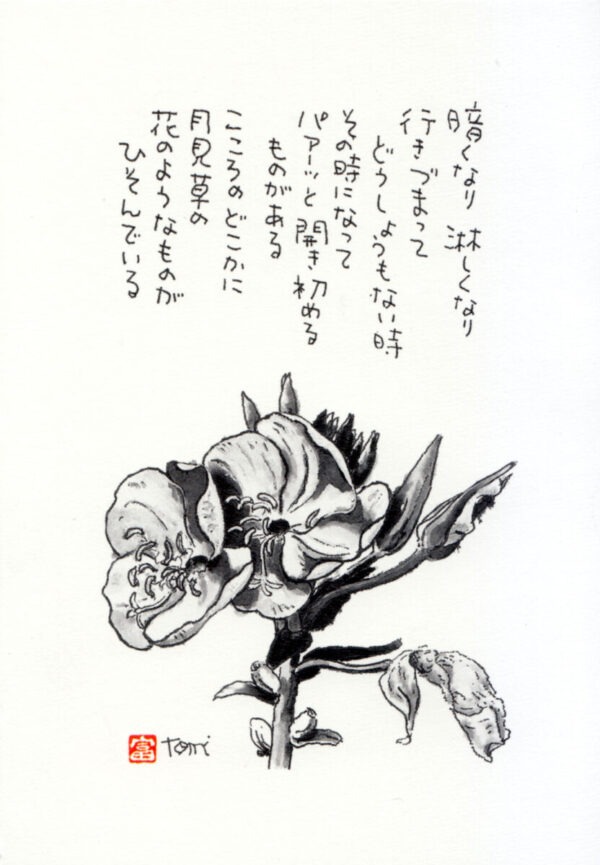 暗くなり 淋しくなり
行きづまって
どうしようもない時
その時になって
パアーッと開き初める
ものがある
こころのどこかに
月見草の
花のようなものが
ひそんでいる
富 tomi